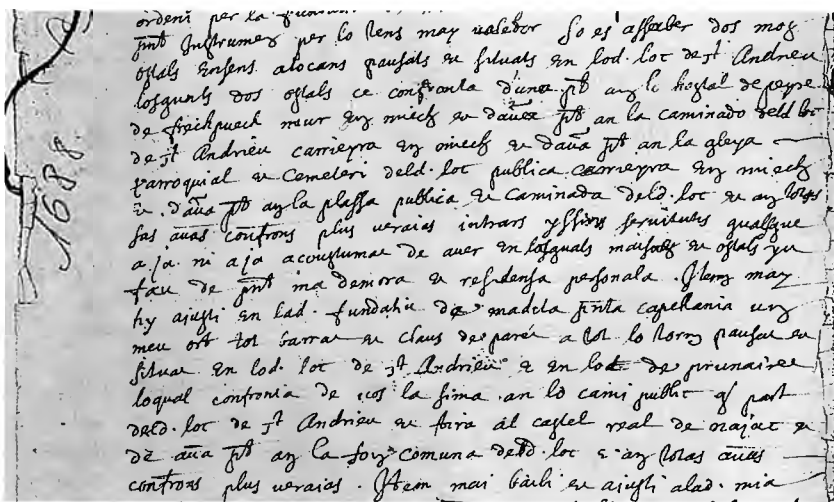 ordeni per la fundatiu
pnt Instrumen per lo tens may valedor so es assaber dos mos
ostals ensens alocans pausats et situats en lod. loc de st Andrieu
losquals dos ostals ce confronta duna pt an lo hostal de peyre
de freichpuech mur en miech et daua pt an la caminado deld loc
de st Andrieu carrieyra en miech et daua pt an la gleya
parroquial et Cemeteri deld. loc publica carrieyra en miech
et daua pt an la plassa publica et Caminada deld. loc et an totas
sas auas confrons plus veraias intrars yssirs servituts qualsque
aja ni aja acoustumat de aver en losquals maisos et ostals yeu
fau de pnt ma demora et residensa personala. Item may
hy ajusti en lad. fundatiu de madicta pnta capellania un
meu ort tot barrat et claus de paret a tot lo torn pausat et
situat en lod. loc de st Andrieu et en loc de prunairee
loqual confronta de vos la sima an lo cami public q part
deld. loc de st Andrieu et tira al castel real de najac et
de aua pt an la fon comuna deld. loc et an totas auas
confrons plus veraias. Item mai baili et ajusti alad. mia
1688.